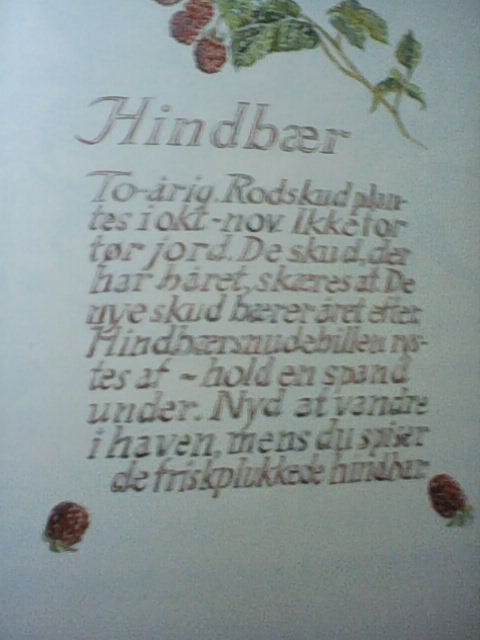 Hindbær
To-årig. Rodskud plan-
tes i okt-nov. Ikke for
tør jord. De skud, der
har båret, skæres af. De
nye skud bærer året efter.
Hindbærsnudebillen rys-
tes af ~ hold en spand
under. Nyd at vandre
i haven, mens du spiser
de friskplukkede hindbær.